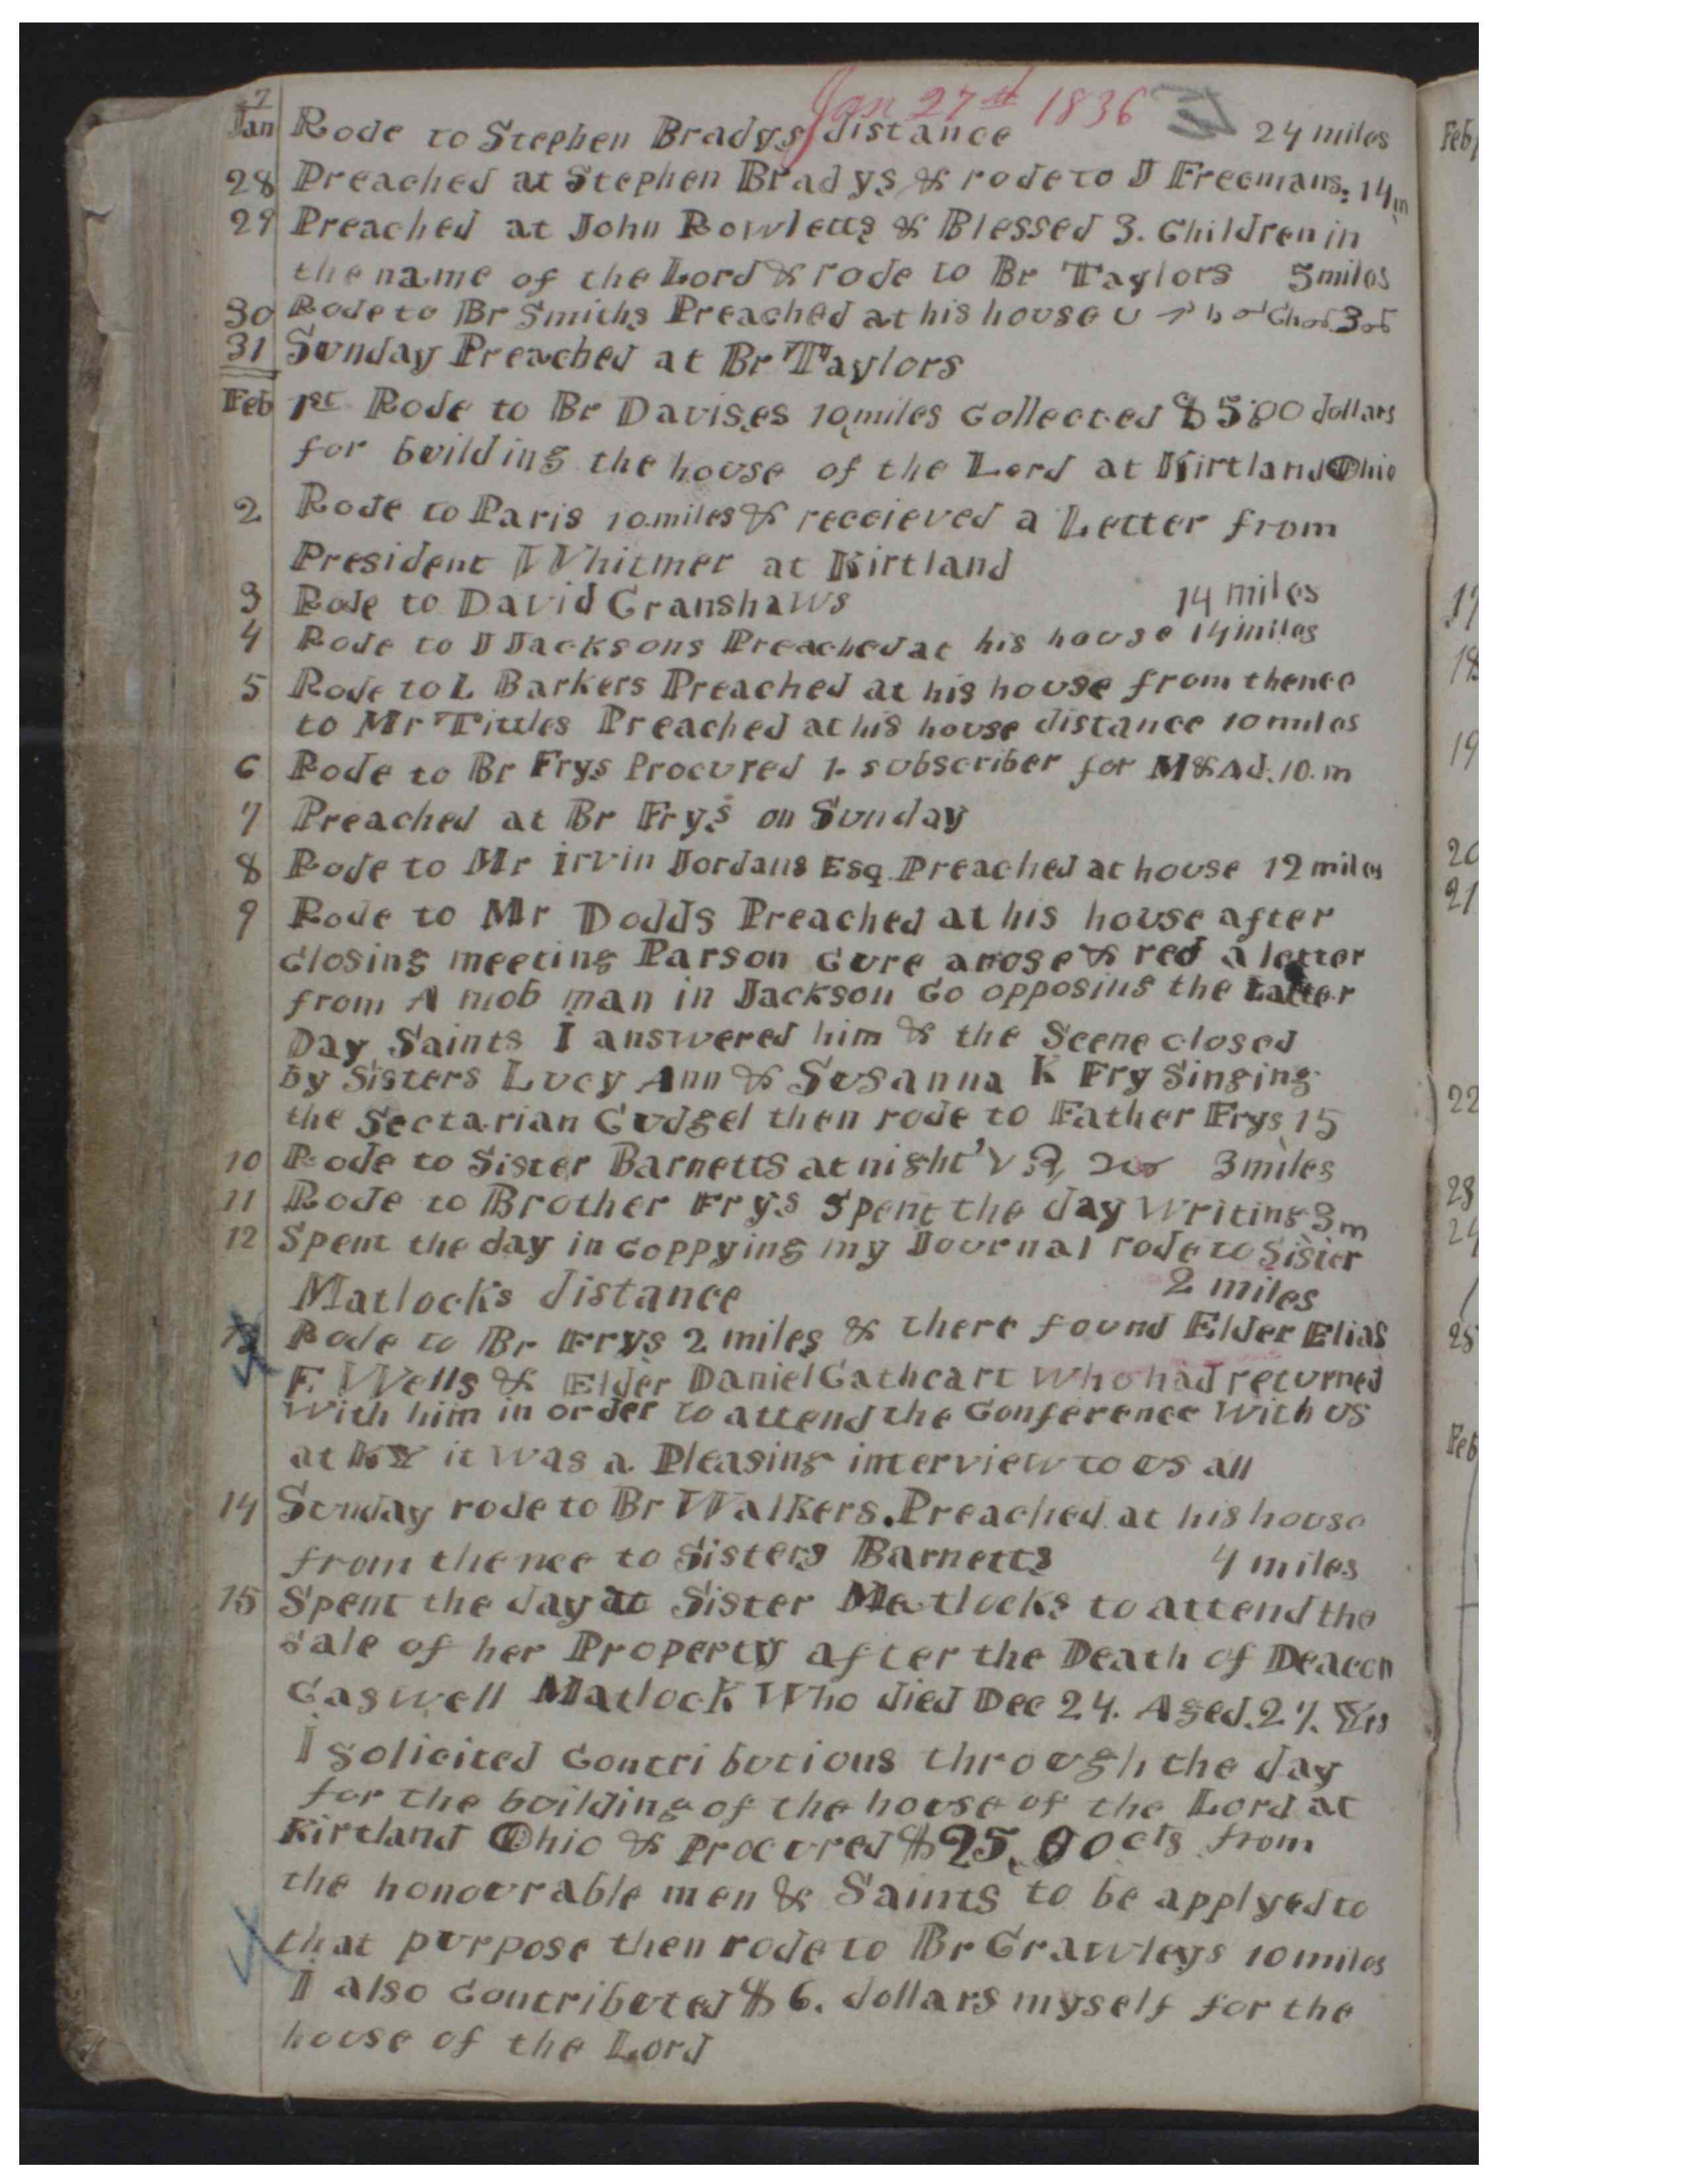 Jan 27th 1836
Jan Rode to Stephen Bradys distance 24 miles
28 Preached at Stephen Bradys & rode to J Freemans. 14 m
29 Preached at John Rowletts & Blessed 3. Children in
the name of the Lord & rode to Br Taylors 5 miles
30 Rode to Br Smiths Preached at his house
31 Sunday Preached at Br Taylors
Feb 1st Rode to Br Davises 10 miles Collected $5.00 dollars
for building the house of the Lord at Kirtland Ohio
2 Rode to Paris 10 miles & receieved a Letter from
President Whitmer at Kirtland
3 Rode to David Cranshaws 14 miles
4 Rode to J Jacksons Preached at his house 14 miles
5 Rode to L Barkers Preached at his house from thence
to Mr Tittles Preached at his house distance 10 miles
6 Rode to Br Frys Procured 1. subscriber for M & Ad. 10. m
7 Preached at Br Frys on Sunday
8 Rode to Mr irvin Jordans Esq Preached at house 12 miles
9 Rode to Mr Dodds Preached at his house after
Closing meeting Parson Gure arose & red a letter
from A mob man in Jackson Co opposing the Latter
Day Saints I answered him & the Scene closed
by Sisters Lucy Ann & Susanna K Fry Singing
the Sectarian Cudgel then rode to Father Frys 15
10 Rode to Sister Barnetts at night 3 miles
11 Rode to Brother Frys Spent the day Writing 3 m
12 Spent the day in Coppying my Journal rode to Sister
Matlocks distance 2 miles
13 Rode to Br Frys 2 miles & there found Elder Elias
F. Wells & Elder Daniel Cathcart Who had returned
With him in order to attend the Conference With us
at KY it was a Pleasing interview to us all
14 Sunday rode to Br Walkers. Preached at his house
from thence to Sisters Barnetts 4 miles
15 Spent the day at Sister Matlocks to attend the
sale of her Property after the Death of Deacon
Caswell Matlock Who died Dec 24. Aged. 27. Yrs
I solicited Contributions through the day
for the building of the house of the Lord at
Kirtland Ohio & Procured $25.00 cts from
the honourable men & Saints to be applyed to
that purpose then rode to Br Crawleys 10 miles
I also Contributed $6. dollars myself for the
house of the Lord